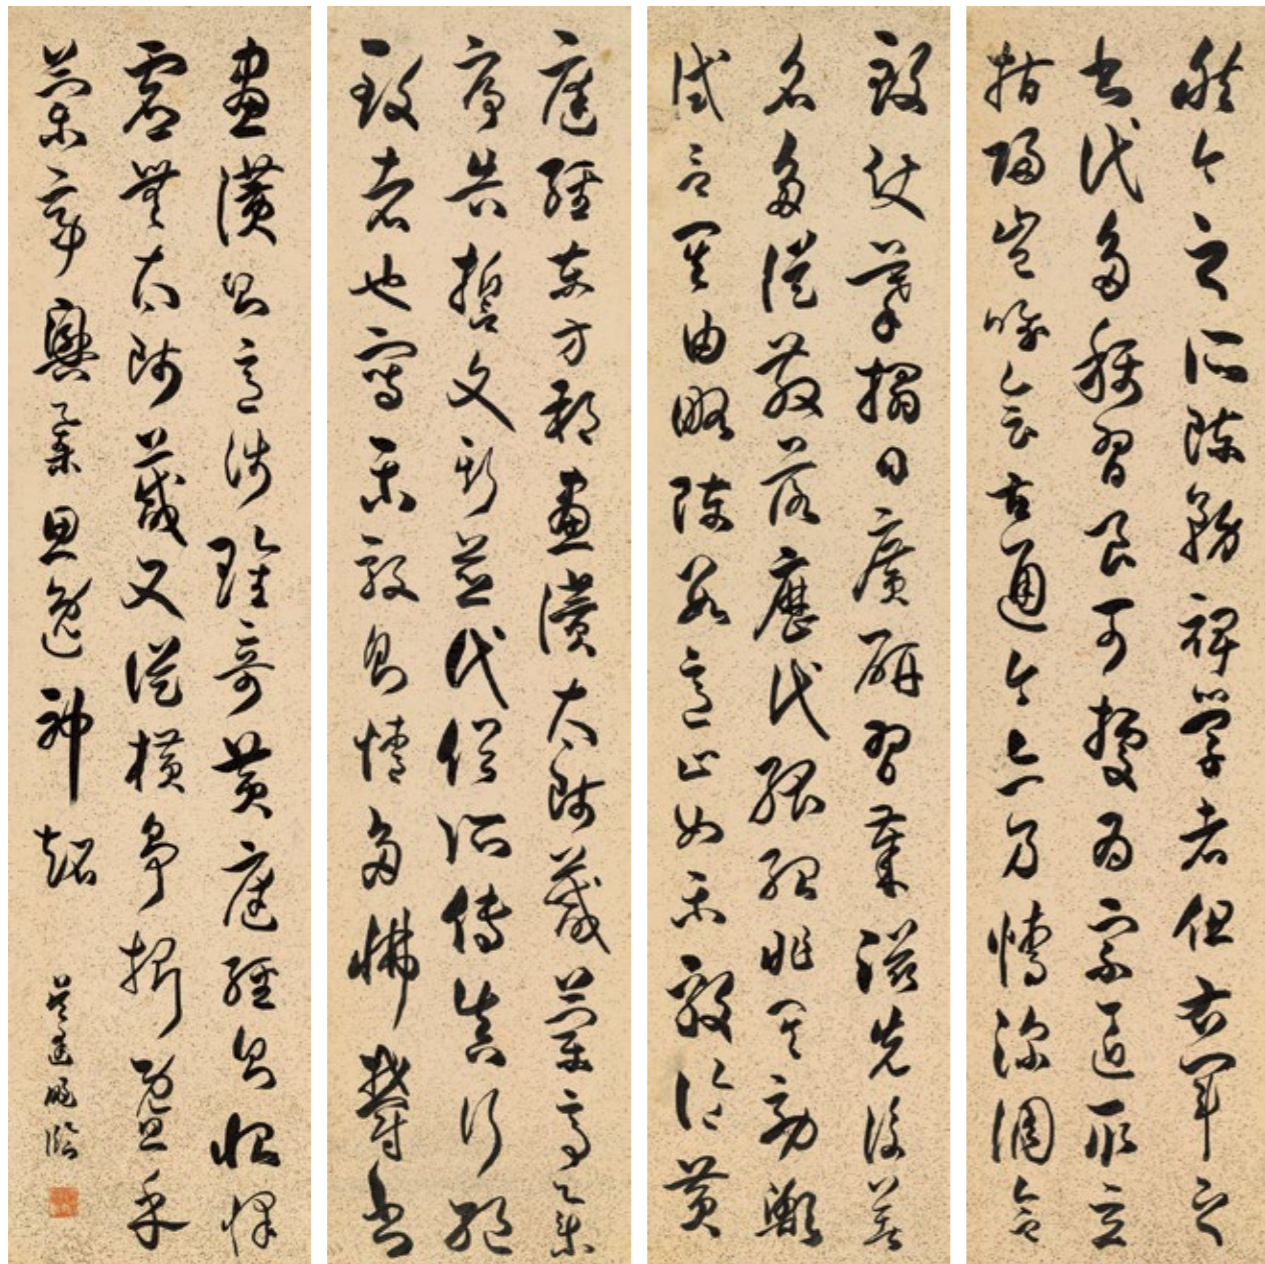 然今之所陳務裨學者但右軍之
書代多稱習良可據為宗匠取立
指歸豈唯會古通今亦乃情深調合
致使摹搨日廣研習歲滋先後著
名多從散落歷代孤紹非其效歟
試言其由略陳數意止如樂毅論黃
庭經東方朔畫讚太師箴蘭亭集
序告誓文斯並代俗所傳真行絕
致者也寫樂毅則情多怫鬱書
畫讚則意涉瓌奇黃庭經則怡懌
虛無太師箴又從橫爭折暨乎
蘭亭興集思逸神超
臨